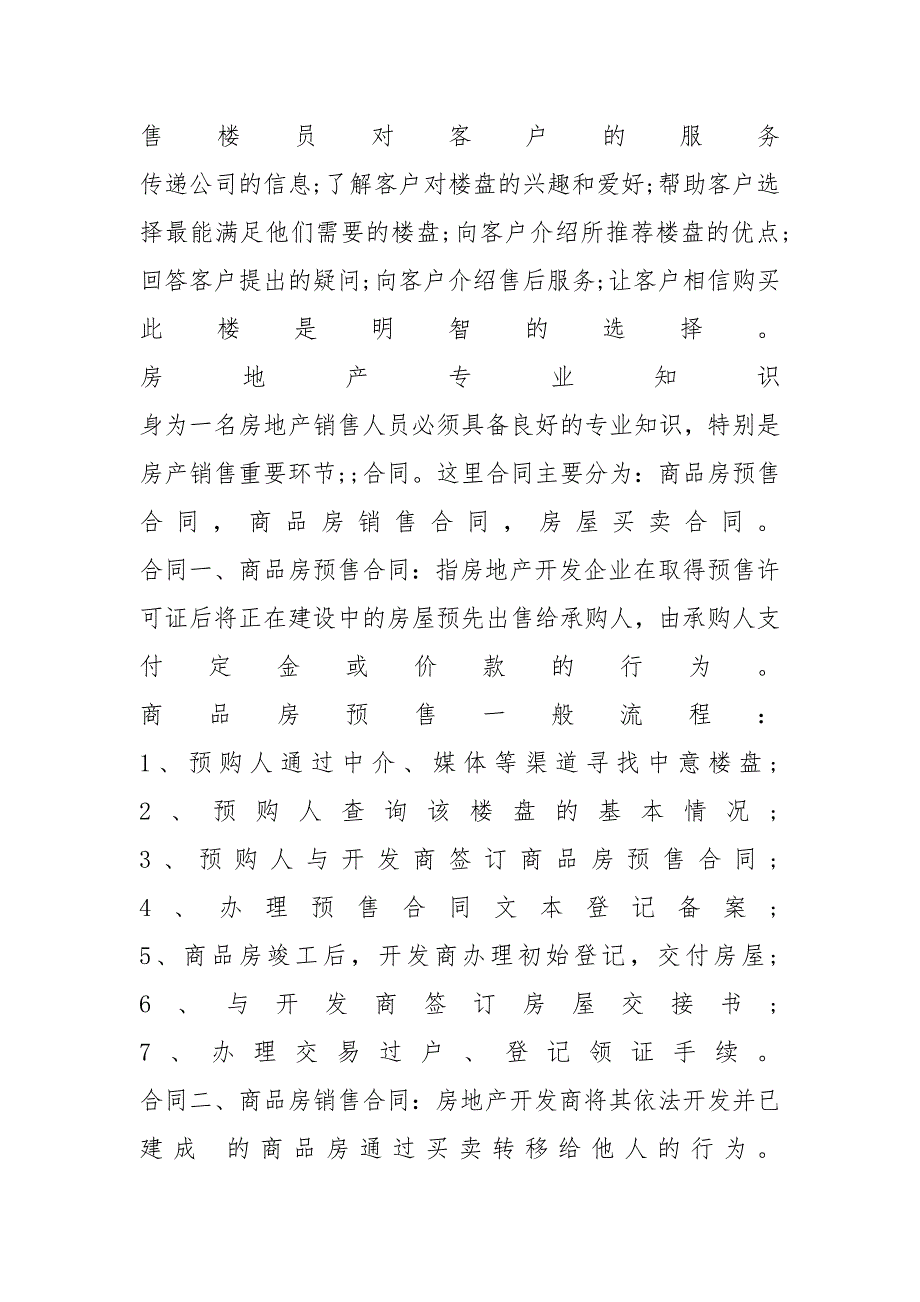 售楼员对客户的服务
传递公司的信息;了解客户对楼盘的兴趣和爱好;帮助客户选
择最能满足他们需要的楼盘;向客户介绍所推荐楼盘的优点;
回答客户提出的疑问;向客户介绍售后服务;让客户相信购买
此楼是明智的选择。
房地产专业知识
身为一名房地产销售人员必须具备良好的专业知识，特别是
房产销售重要环节;;合同。这里合同主要分为：商品房预售
合同，商品房销售合同，房屋买卖合同。
合同一、商品房预售合同：指房地产开发企业在取得预售许
可证后将正在建设中的房屋预先出售给承购人，由承购人支
付定金或价款的行为。
商品房预售一般流程：
1、预购人通过中介、媒体等渠道寻找中意楼盘;
2、预购人查询该楼盘的基本情况;
3、预购人与开发商签订商品房预售合同;
4、办理预售合同文本登记备案;
5、商品房竣工后，开发商办理初始登记，交付房屋;
6、与开发商签订房屋交接书;
7、办理交易过户、登记领证手续。
合同二、商品房销售合同：房地产开发商将其依法开发并已
建成 的商品房通过买卖转移给他人的行为。